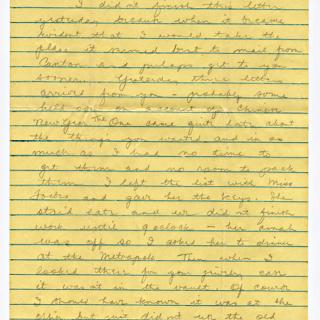 I didn't finish this letter
yesterday because when it became
evident that I would take the
plane it seemed best to mail from
Canton and perhaps get to you
sooner. Yesterday three letters
arrived from you - probably some
held up on account of Chinese
New Year. The One came quite late about
the things you wanted and in as
much as I had no time to
get them and no room to pack
them I left the list with Miss
and gave her the keys. She
staid late and we did not finish
work until 9 o'clock - her amah
was off so I asked her to dinner
at the Metropole. Then when I
looked there for your jewelry case
it was not in the vault. Of course
I should have known it was at the
office but just did not use the old